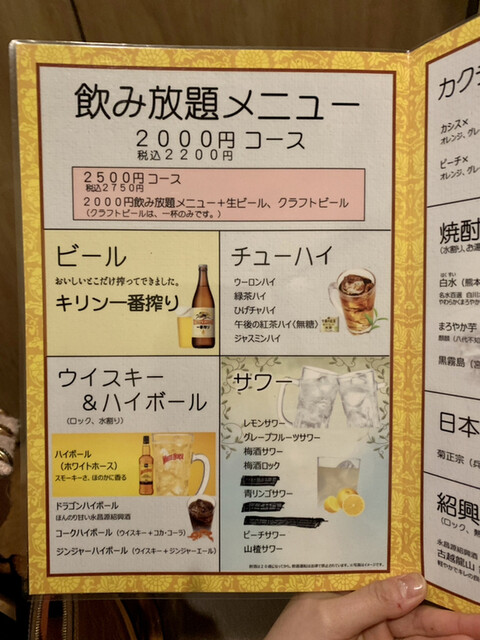 飲み放題メニュー
2000円コース
税込2200円
2500円コース
税込2750円
2000円飲み放題メニュー+生ビール、クラフトビール
(クラフトビールは、一杯のみです。)
ビール
おいしいとこだけ搾ってできました。
キリン一番搾り
チューハイ
ウーロンハイ
緑茶ハイ
ひげチャハイ
午後の紅茶ハイ(無糖)
ジャスミンハイ
ウイスキー
&ハイボール
(ロック、水割り)
ハイボール
(ホワイトホース)
スモーキーさ、ほのかに香る
ドラゴンハイボール
ほんのり甘い永昌源紹興酒
コークハイボール(ウイスキー+コカ・コーラ)
ジンジャーハイボール(ウイスキー+ジンジャーエール)
サワー
レモンサワー
グレープフルーツサワー
梅酒サワー
梅酒ロック
青リンゴサワー
ピーチサワー
山楂サワー
カク
カシス×
オレンジ、グレ
ピーチ×
オレンジ、グレ
焼酎
(水割り、お湯
白水(熊本
名水百選 白川
やわらかくまろやか
まろやか芋
黒霧島(宮
日本
菊正宗(兵
紹興
(ロック、
永昌源紹興酒
古越龍山
軽やかでキレの良